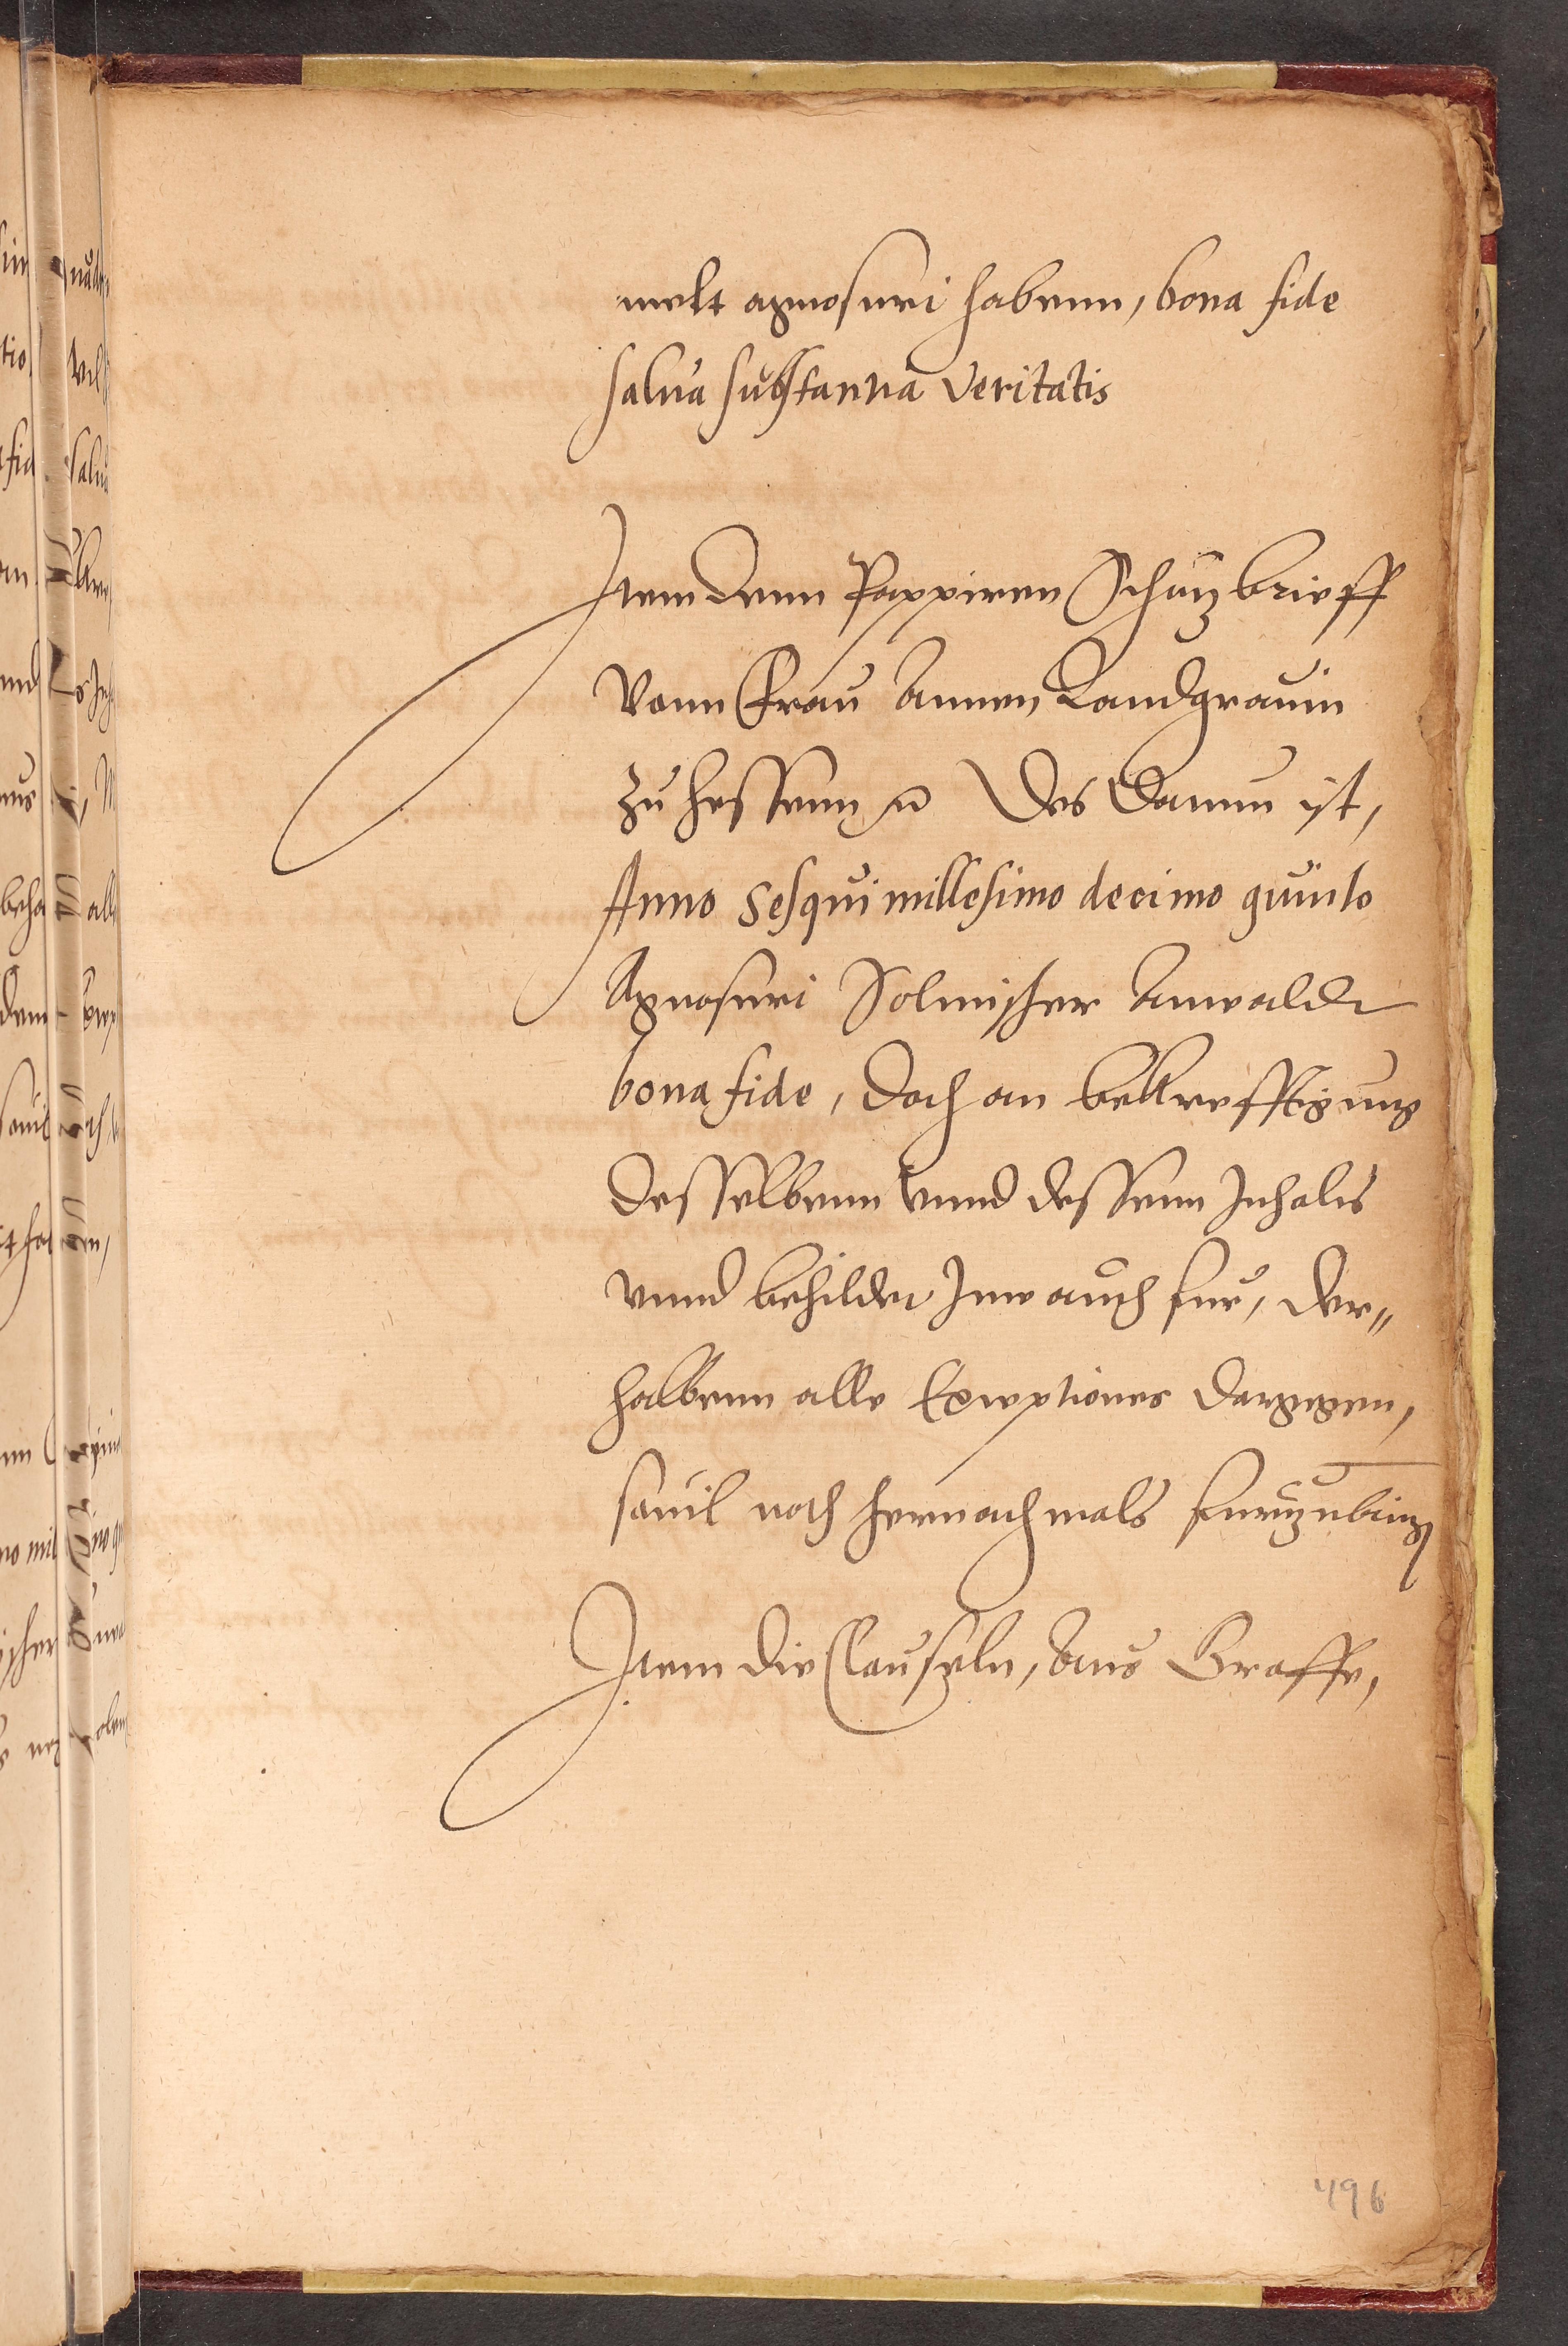 melt agnosciri habenn, bona fide
salua substantia Veritatis
Item denn Pappiren Schutzbrieff
Vonn Frau Annen Landgrauin
Zu Hessenn &c Des Datum ist,
Anno Sesqui millesimo decimo quinto
Agnosciri Solmischer Anwaldt
bona fide, doch on bekrefftigung
desselbenn vnnd dessenn Inhalts
vnnd behildet Ime auch fur, der„
halbenn alle Exceptiones dargegen,
souil noch hernachmals furzubring
Item die Clauseln, Aus Graffe,
496